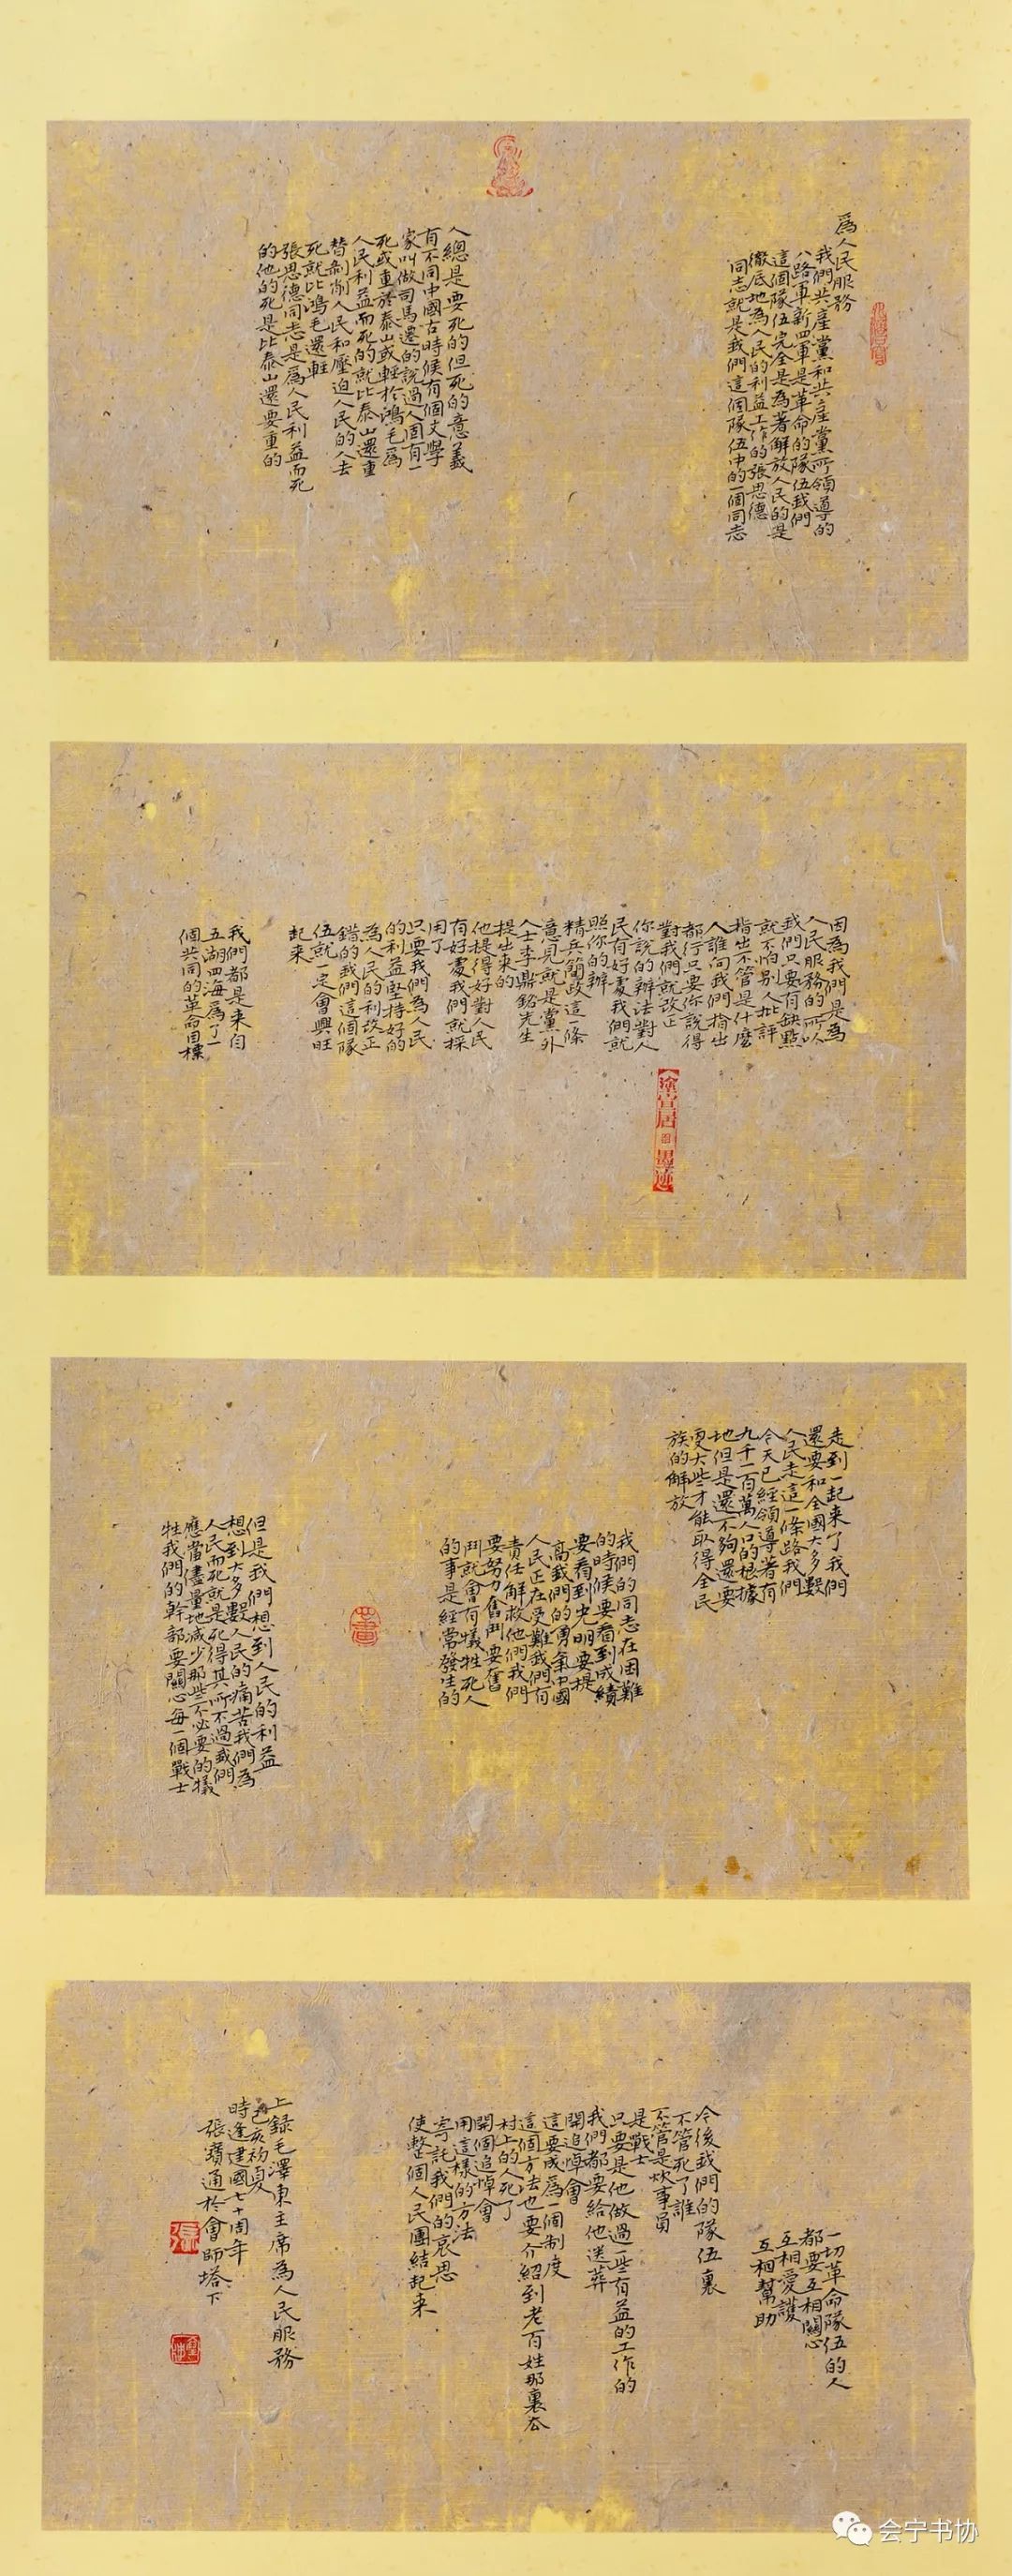 爲人民服務
我們共產黨和共產黨所領導的
八路軍新四軍是革命的隊伍我們
這個隊伍完全是為著解放人民的是
徹底地為人民的利益工作的張思德
同志就是我們這個隊伍中的一個同志
人總是要死的但死的意義
有不同中國古時候有個文學
家叫做司馬遷的說過人固有一
死或重於泰山或輕於鴻毛爲
人民利益而死的就比泰山還重
替剝削人民和壓迫人民的人去
死就比鴻毛還輕
張思德同志是爲人民利益而死
的他的死是比泰山還要重的
因為我們是為
人民服務的所以
我們只要有缺點
就不怕別人批評
指出不管是什麼
人誰向我們指出
都行只要你說得
對我們就改正
你說的辦法對人
民有好處我們就
照你的辦
精兵簡政這一條
意見就是黨外
人士李鼎銘先生
提出來的
他提得好對人民
有好處我們就採
用了
只要我們為人民
的利益堅持好的
為人民的利改正
錯的我們這個隊
伍就一定會興旺
起來
我們都是来自
五湖四海爲了一
個共同的革命目標
塗宣居墨迹
走到一起来了我們
還要和全國大多數
人民走這一條路我們
今天已經領導著有
九千一百萬人口的根據
地但是還不夠還要
更大些才能取得全民
族的解放
我們的同志在困難
的時候要看到成績
要看到光明要提
高我們的勇氣中國
人民正在受難我們有
責任解救他們我們
要努力奮鬥要奮
鬥就會有犧牲死人
的事是經常發生的
但是我們想到人民的利益
想到大多數人民的痛苦我們為
人民而死就是死得其所不過我們
應當儘量地減少那些不必要的犧
牲我們的幹部要關心每一個戰士
一切革命隊伍的人
都要互相關心
互相愛護
互相幫助
今後我們的隊伍裏
不管死了誰
不管是炊事員
是戰士
只要是他做過一些有益的工作的
我們都要給他送葬
開追悼會
這要成爲一個制度
這個方法也要介紹到老百姓那裏去
村上的人死了
開個追悼會
用這樣的方法
寄託我們的哀思
使整個人民團結起来
上錄毛澤東主席為人民服務
時己亥初夏
時逢建國七十周年
張寶通於會師塔下
会宁书协